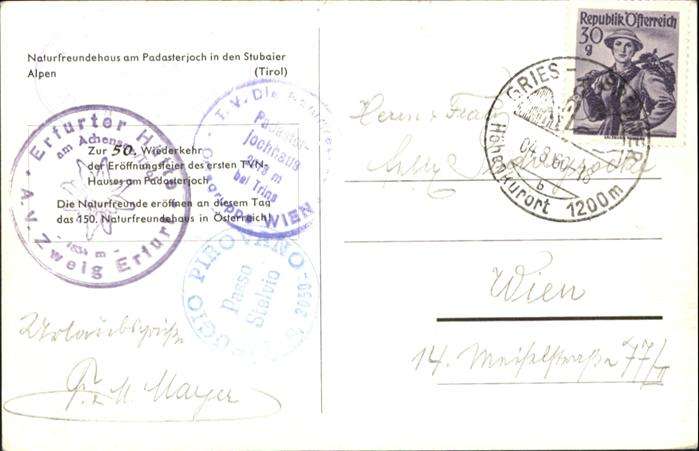 Naturfreundehaus am Padasterjoch in den Stubaier
Alpen (Tirol)
Zur 50. Wiederkehr
der Eröffnungsfeier des ersten TVN-
Hauses am Padasterjoch
Die Naturfreunde eröffnen an diesem Tag
das 150. Naturfreundehaus in Österreich!
Erfurter Hütte
am Achensee
1834 m
A. V. Zweig Erfurt
T. V. Die Naturfreunde
Padaster-
jochhaus
bei Trins
WIEN
RIFUGIO PIROVANO
Passo
Stelvio
Urlaubsgrüße
F. u. M. Mayer
Republik Österreich
30
g
GRIES
Höhenkurort 1200m
b
Wien
14. Meiselstraße 77/II